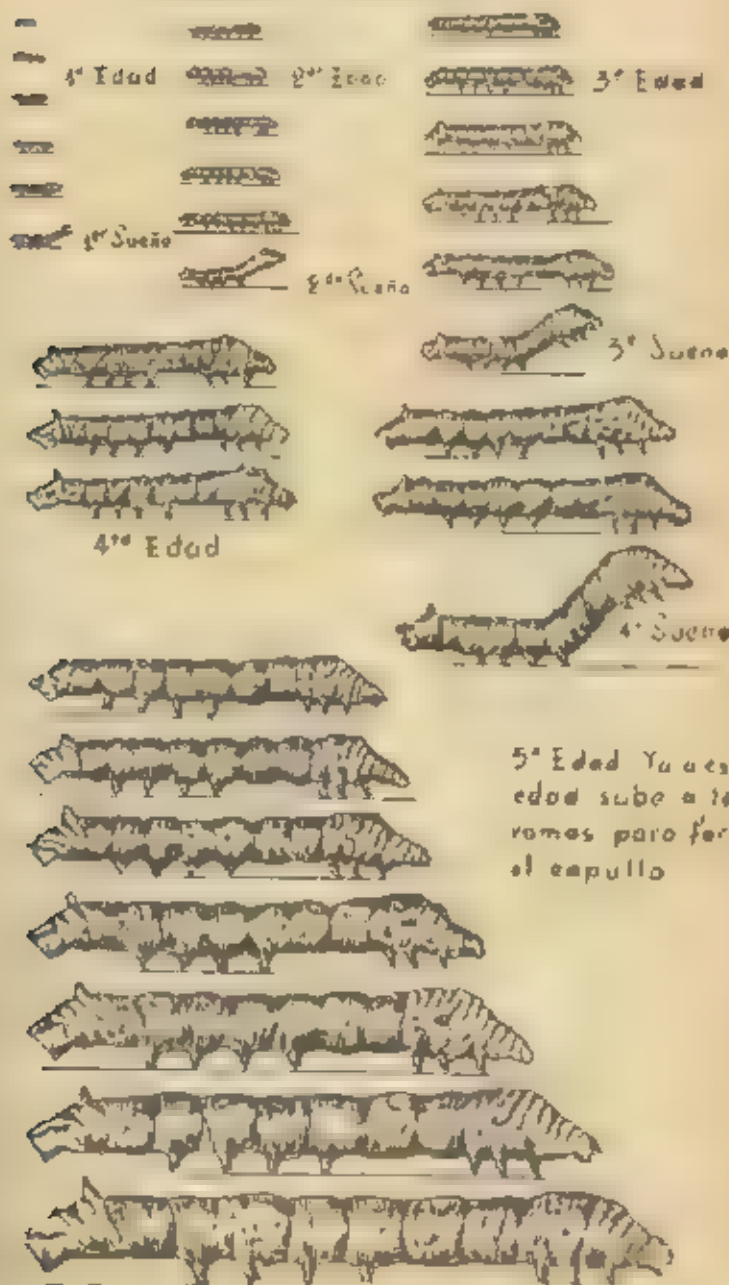 1ª Edad
2ª Edad
3ª Edad
1er Sueño
2do Sueño
3º Sueño
4ta Edad
4º Sueño
5ª Edad Ya a es
edad sube a la
ramas para for
el capullo